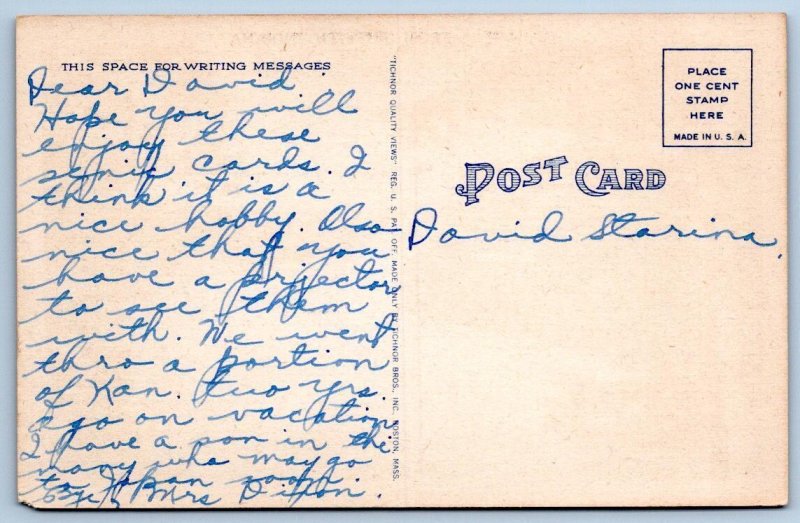 THIS SPACE FOR WRITING MESSAGES
Dear David
Hope you will
enjoy these
senic cards. I
think it is a
nice hobby. Also
nice that you
have a prjector
to see them
with. We went
thro a portion
of Kan. two yrs.
ago on vacation
I have a son in the
many who may go
to Japan soon.
Mrs Dixon.
"TICHNOR QUALITY VIEWS" REG. U. S. PAT. OFF. MADE ONLY BY TICHNOR BROS., INC., BOSTON, MASS.
PLACE
ONE CENT
STAMP
HERE
MADE IN U. S. A.
POST CARD
David Starina